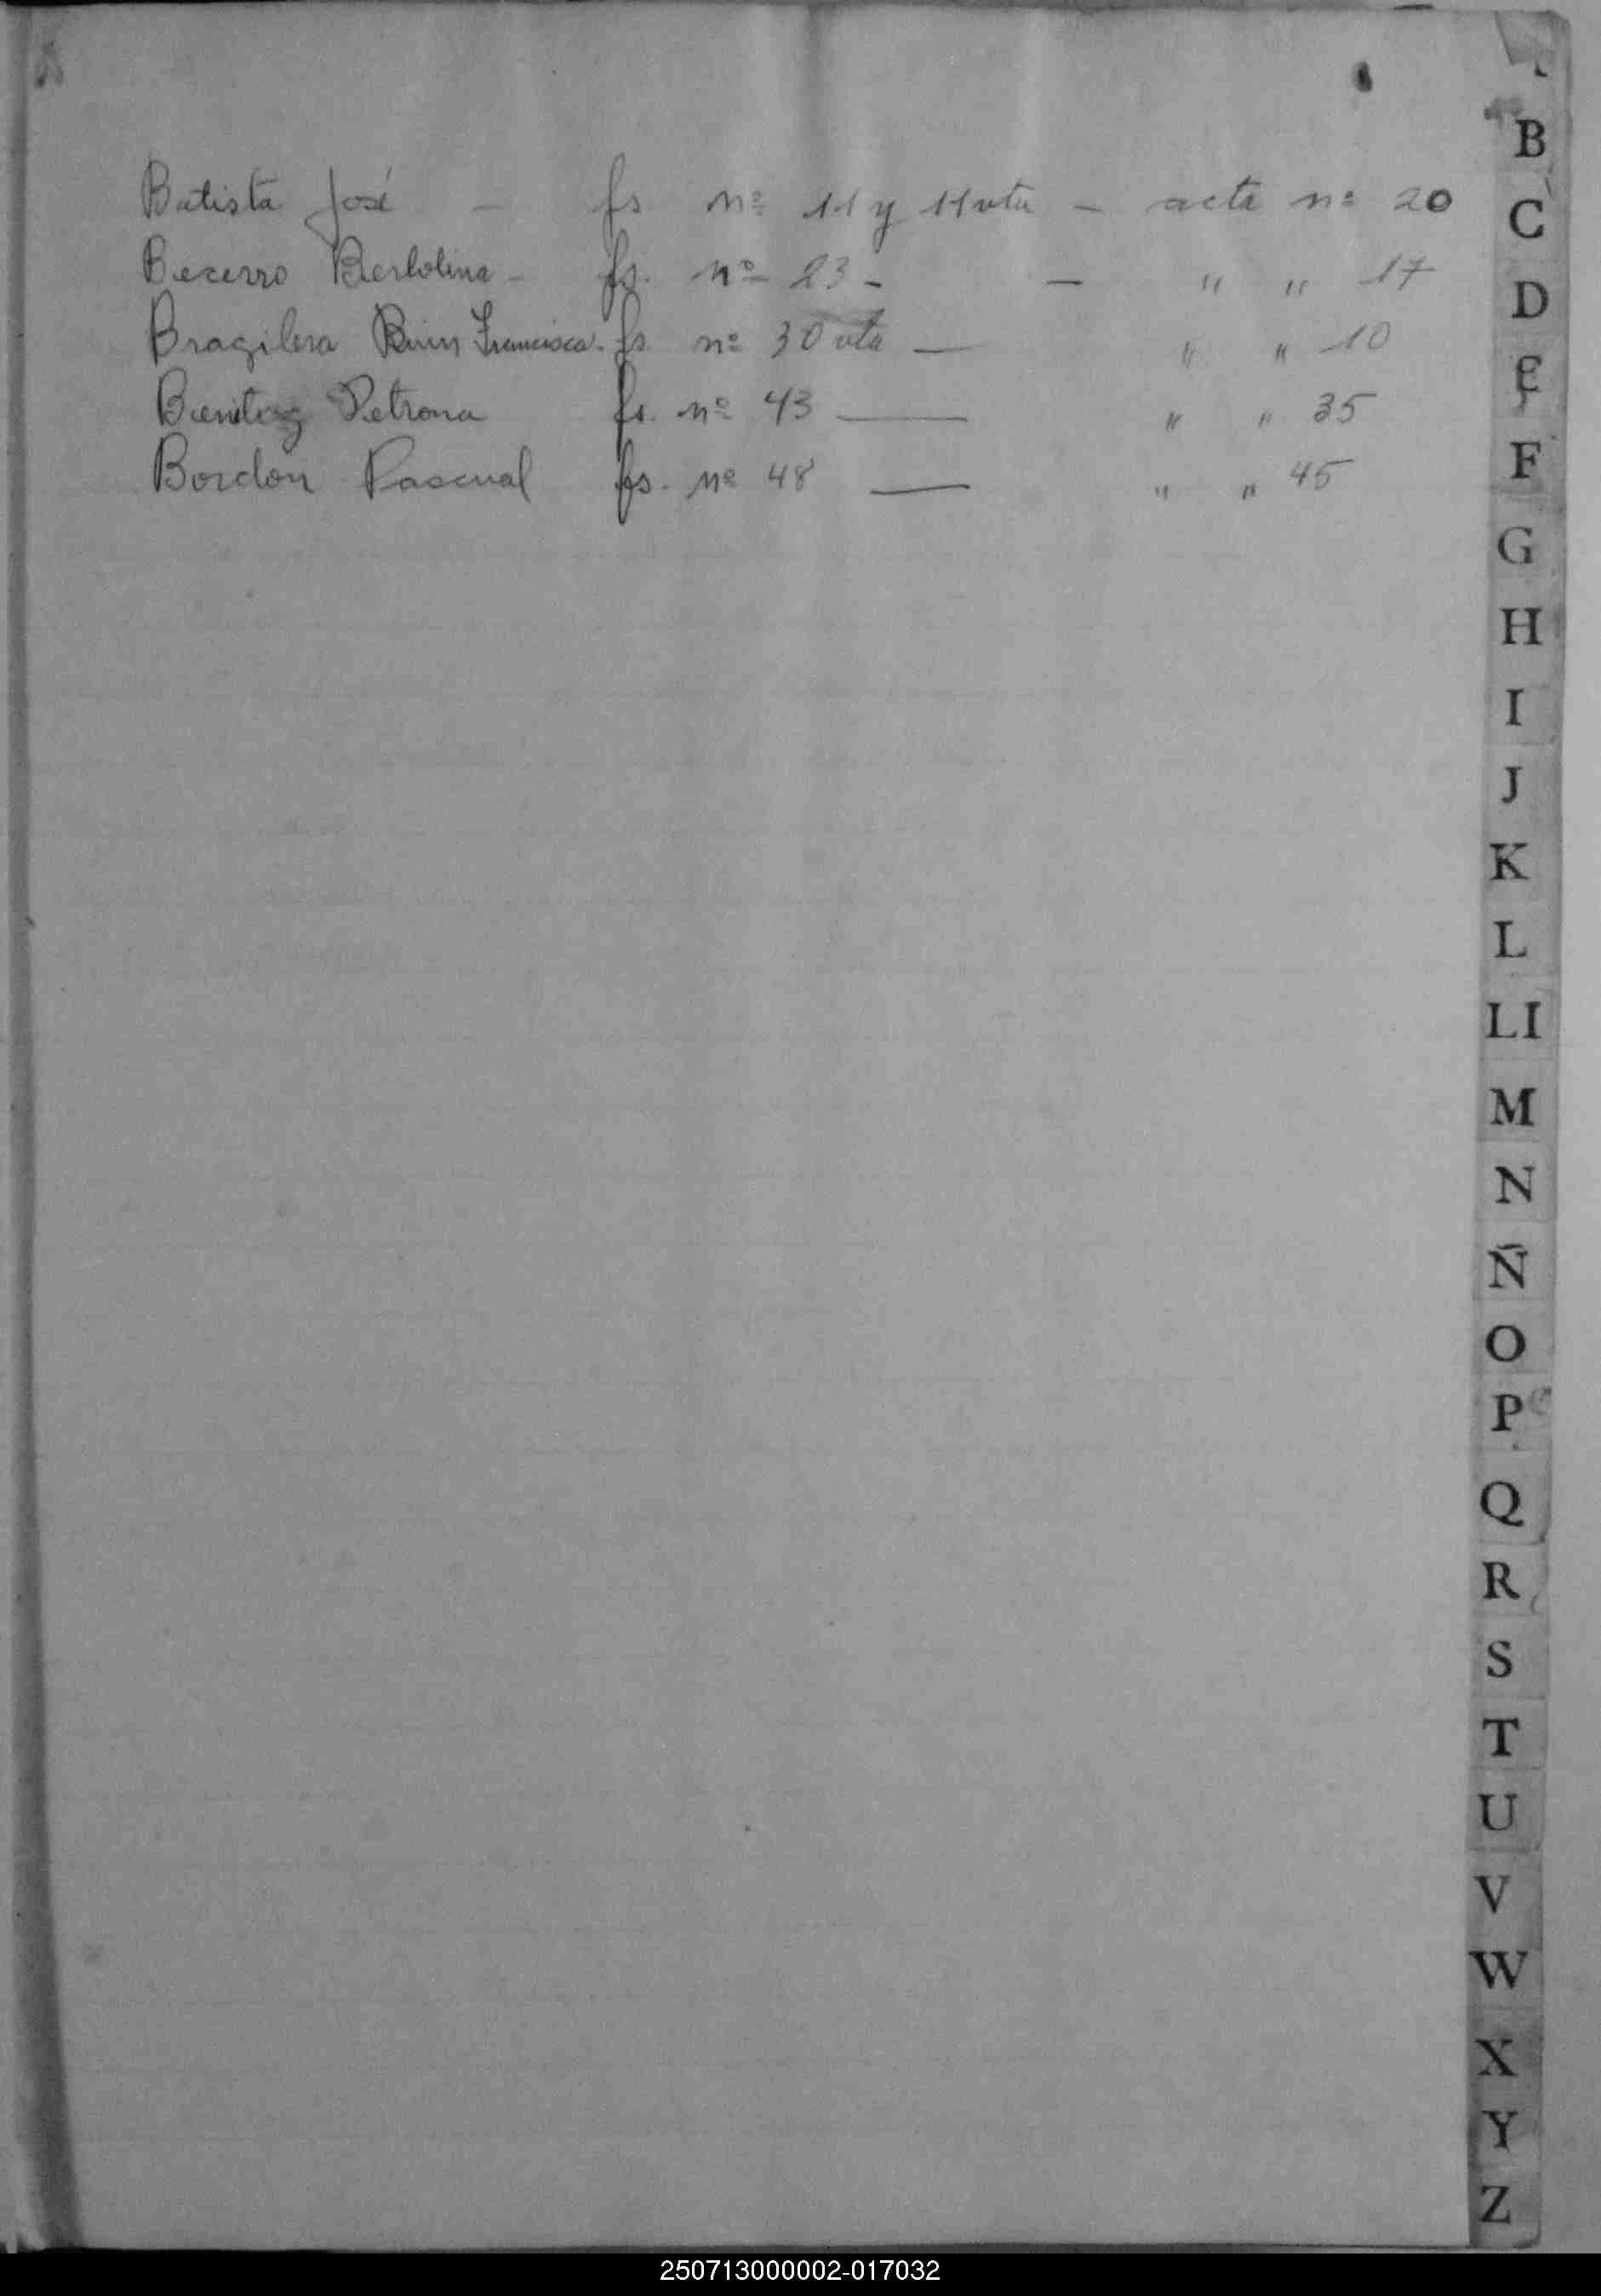 Batista José - fs nº 11 y 11 vta - acta nº 20
Becerro Bertolina - fs. nº 23 - - " " 17
Bragilera Francisca - fs. nº 30 vta — " " 10
Benitez Petrona fs. nº 43 — " " 35
Bordon Pascual fs. nº 48 — " " 45
B
C
D
E
F
G
H
I
J
K
L
LI
M
N
Ñ
O
P
Q
R
S
T
U
V
W
X
Y
Z
250713000002-017032